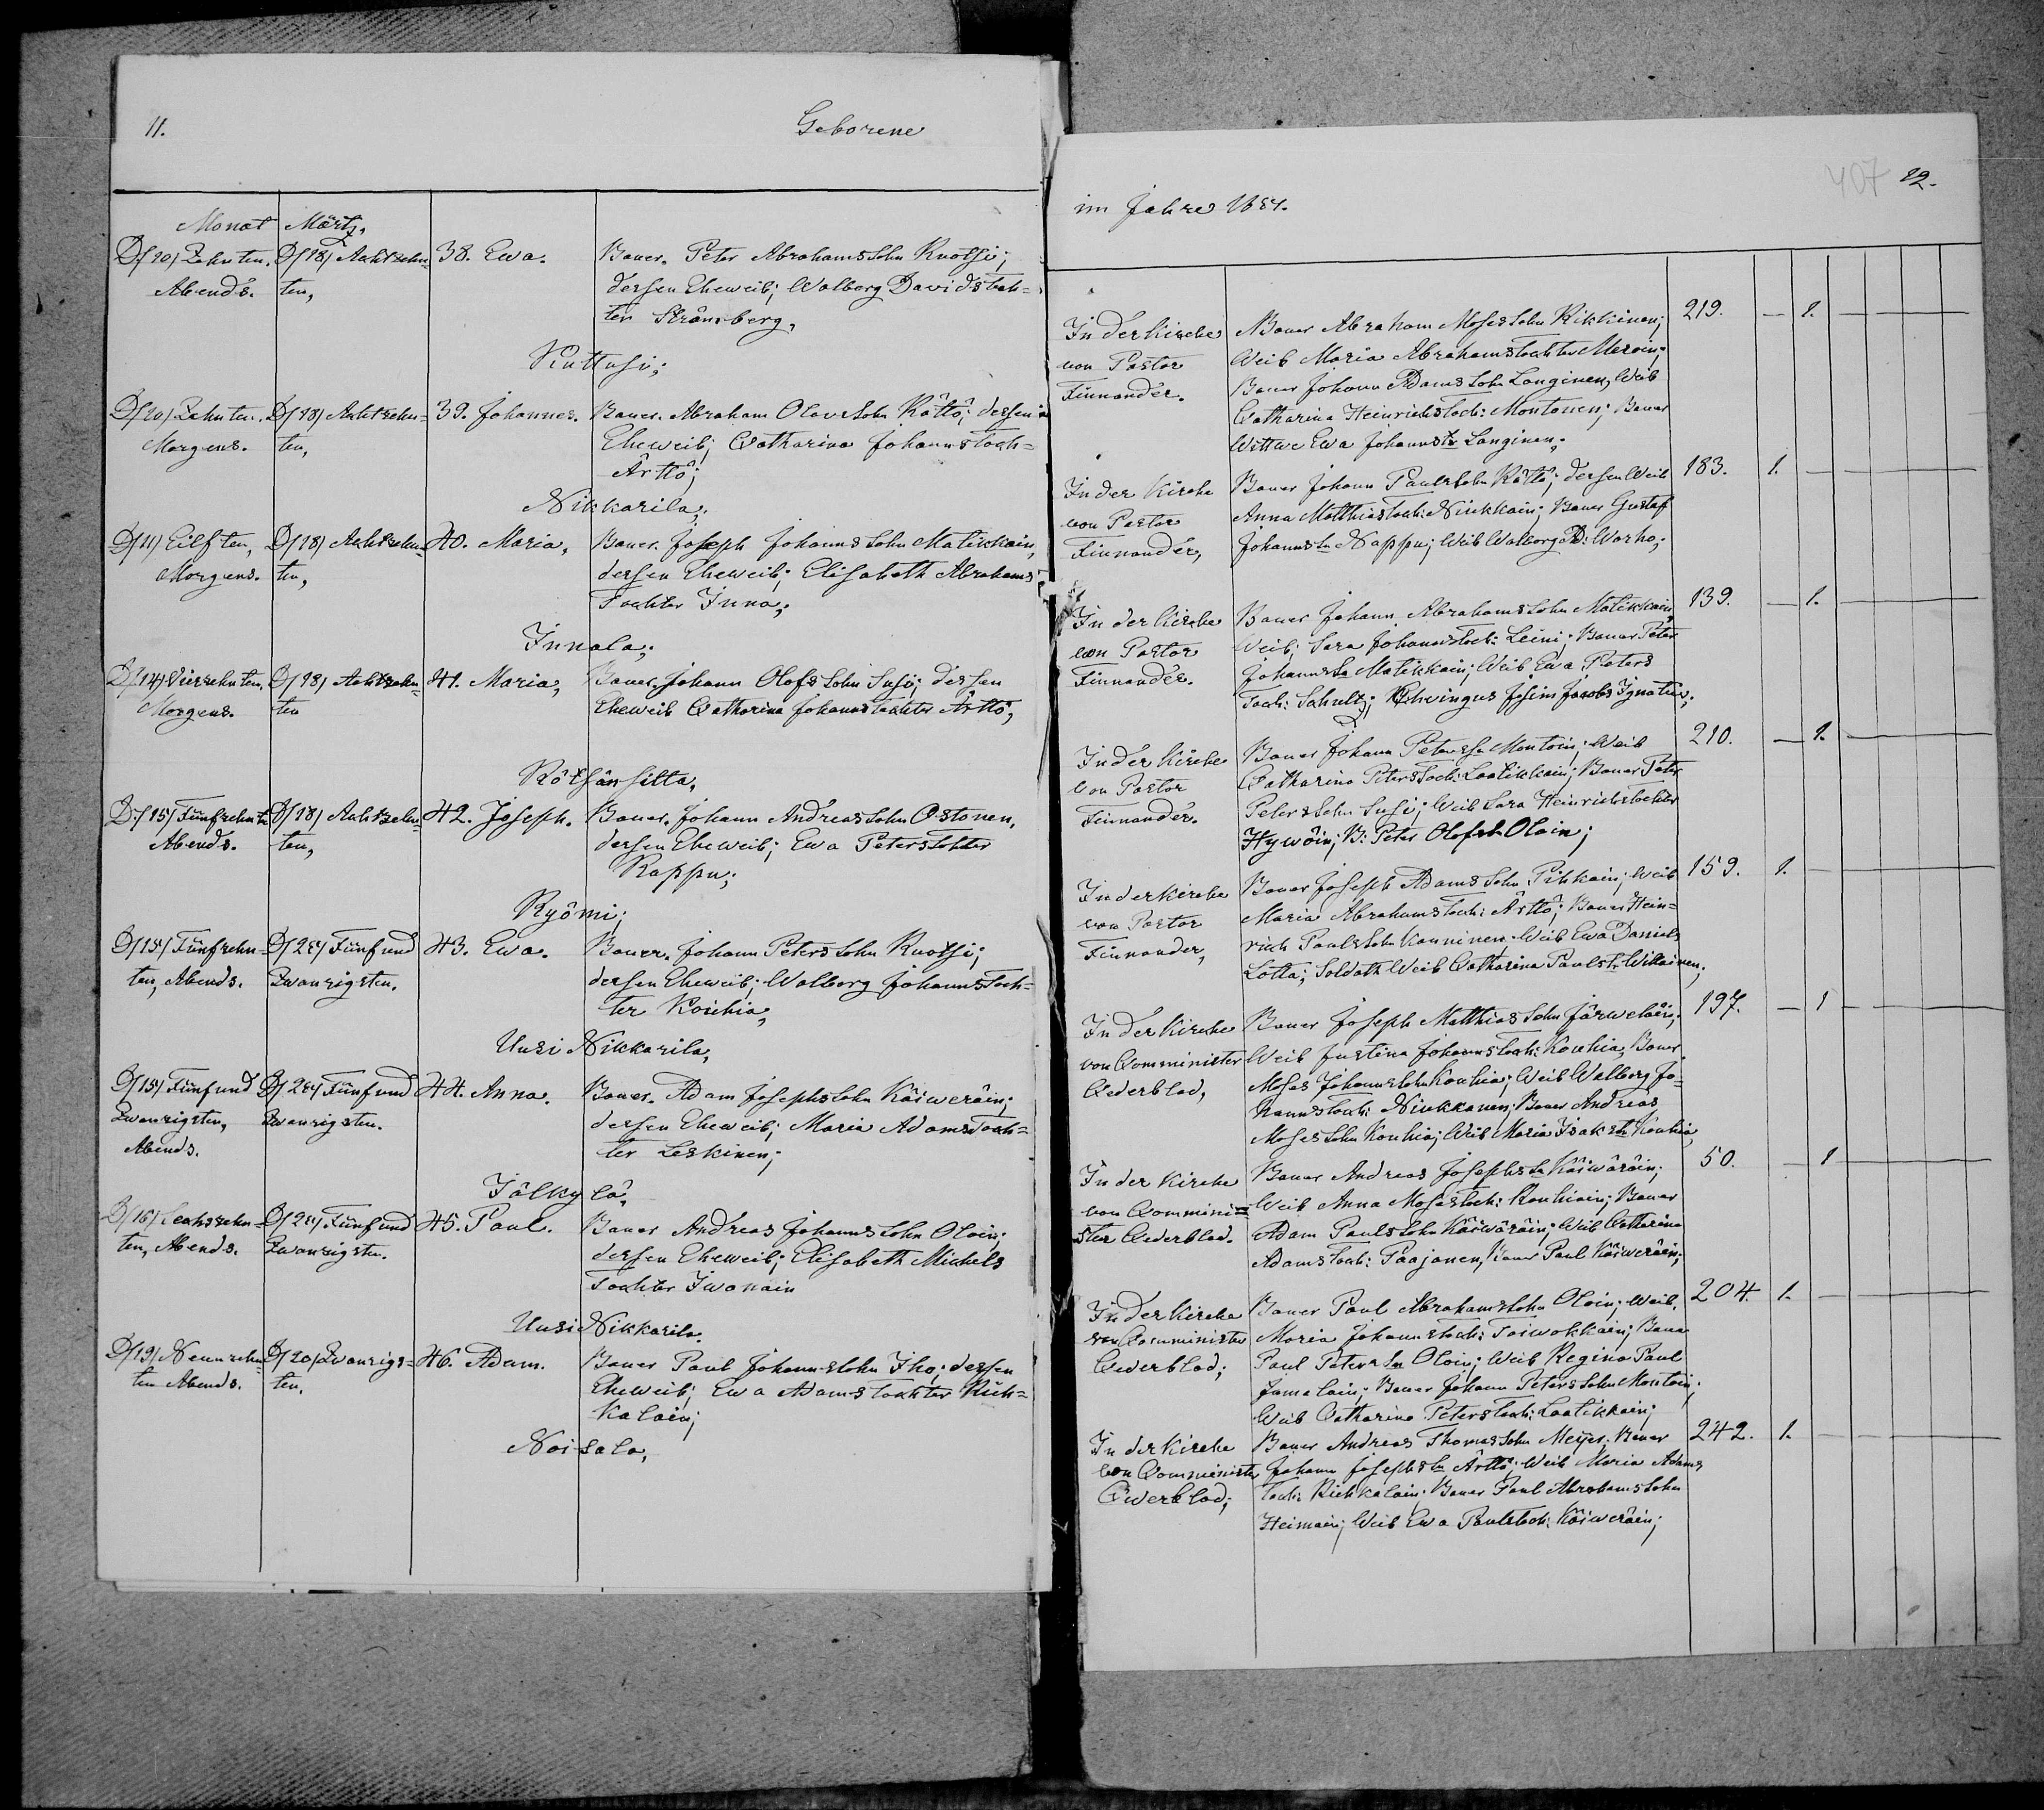 11.
Geborene
Monat März,
D/10/ Zehnten. D/18/ Achtzehn= 38. Ewa. Bauer. Peter Abrahamssohn Ruotsi;
Abends. ten, dessen Eheweib; Walborg Davidstoch=
ter Strömberg,
Kuttusi;
D/10/ Zehnten. D/18/ Achtzehn= 39. Johannes. Bauer. Abraham Olavssohn Röttö; dessen
Morgens. ten, Eheweib; Catharina Johannstoch=
Ärttö;
Nikkarila;
D/11/ Eilften, D/18/ Achtzehn= 40. Maria, Bauer. Joseph Johannssohn Matikkain,
Morgens. ten, dessen Eheweib; Elisabeth Abrahams
Tochter Inna;
Innala;
D/14/ Vierzehnten, D/18/ Achtzehn= 41. Maria, Bauer. Johann Olofssohn Susi; dessen
Morgens. ten Eheweib Catharina Johannstochter Ärttö;
Rötsänsilta,
D/15/ Fünfzehnte D/18/ Achtzehn= 42. Joseph. Bauer. Johann Andreassohn Ostonen,
Abends. ten, dessen Eheweib; Ewa Peterstochter
Rappu;
Ryömi;
D/15/ Fünfzehn= D/25/ Fünfund 43. Ewa. Bauer. Johann Peterssohn Ruotsi;
ten, Abends. Zwanzigsten. dessen Eheweib; Walborg Johannstoch=
ter Koukia;
Uusi Nikkarila,
D/15/ Fünfund D/25/ Fünfund 44. Anna. Bauer. Adam Josephssohn Käiweräin;
Zwanzigsten, Zwanzigsten. dessen Eheweib; Maria Adamstoch=
Abends. ter Leskinen;
Jälkylä,
D/16/ Sechszehn= D/25/ Fünfund 45. Paul. Bauer Andreas Johannssohn Oloin;
ten, Abends. Zwanzigsten. dessen Eheweib; Elisabeth Michels
Tochter Iwanain
Uusi Nikkarila.
D/19/ Neunzehn= D/20/ Zwanzigs= 46. Adam. Bauer Paul Johannssohn Iho; dessen
ten Abends. ten. Eheweib; Ewa Adamstochter Rich=
kalain;
Noisala,
407 12.
im Jahre 1884.
In der Kirche Bauer Abraham Mosessohn Kikkinen; 219. — 1. — — —
von Pastor Weib Maria Abrahamstochter Meroin;
Finnander. Bauer Johann Adamssohn Longinen, Weib
Catharina Heinrichstoch: Montonen; Bauer
Wittwe Ewa Johannstr Longinen;
In der Kirche Bauer Johann Paulssohn Röttö; dessen Weib 183. 1. — — —
von Pastor Anna Matthiastoch: Niukkain; Bauer Gustaf
Finnander, Johannssn Nappu; Weib Walborg D: Warho;
In der Kirche Bauer Johann Abrahamssohn Matikkain, 139. — 1. — — —
von Pastor Weib; Sara Johannstoch: Leini; Bauer Peter
Finnander. Johannssn Matikkain; Weib Ewa Peters
Toch: Schultz; Jacobs Ignatius;
In der Kirche Bauer Johann Peterssn Montoin; Weib 210. — 1. — — —
von Pastor Catharina Peterstoch: Laatikkain; Bauer Peter
Finnander. Peterssohn Susi; Weib Sara Heinrichstochter
Hywöin; B: Peter Olofssn Oloin;
In der Kirche Bauer Joseph Adamssohn Pihkain; Weib 159. 1. — — —
von Pastor Maria Abrahamstoch: Ärttö; Bauer Hein=
Finnander, rich Paulssohn Kanninen; Weib Ewa Daniels
Lotta; Soldath Weib Catharina Paulstr Willainen;
In der Kirche Bauer Joseph Matthiassohn Järweläin; 197. — 1 — — —
von Comminister Weib Justina Johannstoch: Koukia; Bauer
Cederblad, Moses Johannssohn Koukia; Weib Walborg Jo=
hannstoch: Niukkanen; Bauer Andreas
Mosessohn Koukia; Weib Maria Isakstr Koukia
In der Kirche Bauer Andreas Josephssn Käiwäräin; 50. — 1 — — —
von Commini= Weib Anna Mosestoch: Koukiain; Bauer
ster Cederblad. Adam Paulssohn Käiwäräin; Weib Catharina
Adamstoch: Paajanen, Bauer Paul Käiweräin;
In der Kirche Bauer Paul Abrahamssohn Oloin; Weib, 204. 1. — — —
von Comminister Maria Johannstoch: Toiwokkain; Bauer
Cederblad; Paul Peterssn Oloin; Weib Regina Paul
Jamalain; Bauer Johann Peterssohn Montoin;
Weib Catharina Peterstoch: Laatikkain;
In der Kirche Bauer Andreas Thomassohn Meyer. Bauer 242. 1. — — —
von Comminister Johann Josephssn Ärttö; Weib Maria Adams
Cederblad; toch: Richkalain. Bauer Paul Abrahamssohn
Heimain; Weib Ewa Paulstoch: Käiweräin;